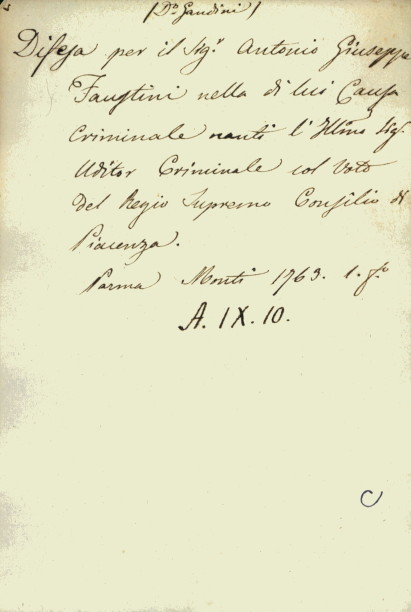 (D.r Gandini)
Difesa per il Sig.r Antonio Giuseppe
Faustini nella di lui Causa
Criminale nanti l'Illmo Sig.
Uditor Criminale col Voto
del Regio Supremo Consilio di
Piacenza.
Parma Monti 1763. 1. f.o
A. IX. 10.
C